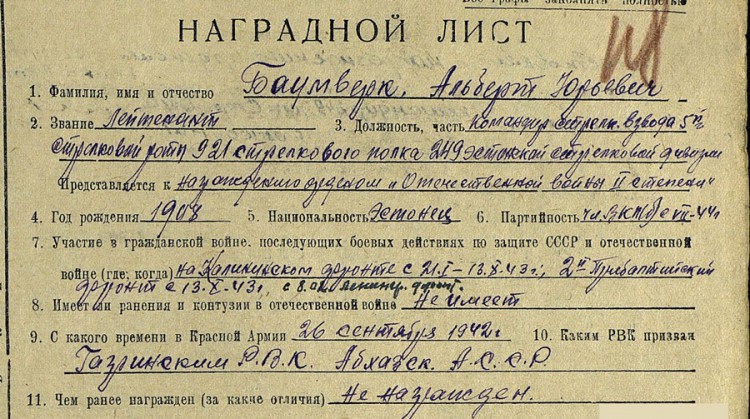 Все графы заполнять полностью
НАГРАДНОЙ ЛИСТ
1. Фамилия, имя и отчество Баумверк, Альберт Юрьевич
2. Звание Лейтенант 3. Должность, часть командир стрелк. взвода 5й
стрелковой роты 921 стрелкового полка 249 эстонской стрелковой дивизии
Представляется к награждению орденом „Отечественной войны II степени"
4. Год рождения 1908 5. Национальность Эстонец 6. Партийность чл. ВКП(б) с VII-44г
7. Участие в гражданской войне, последующих боевых действиях по защите СССР и отечественной
войне (где, когда) на Калининском фронте с 21.I–13.X-43г., 2й Прибалтийский
фронт с 13.X-43г., с Ленингр. фронт.
8. Имеет ли ранения и контузии в отечественной войне Не имеет
9. С какого времени в Красной Армии 26 сентября 1942г 10. Каким РВК призван
Р.В.К. Абхазск. А.С.С.Р.
11. Чем ранее награжден (за какие отличия) Не награжден.